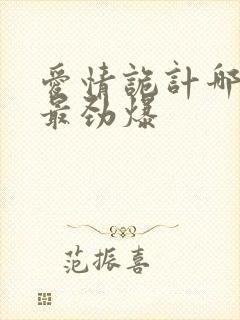 愛情詭計哪
最劲爆
范振喜